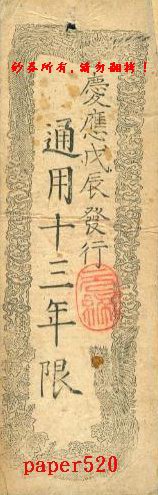 钞券所有,请勿翻转!
慶應戊辰發行
通用十三年限
paper520